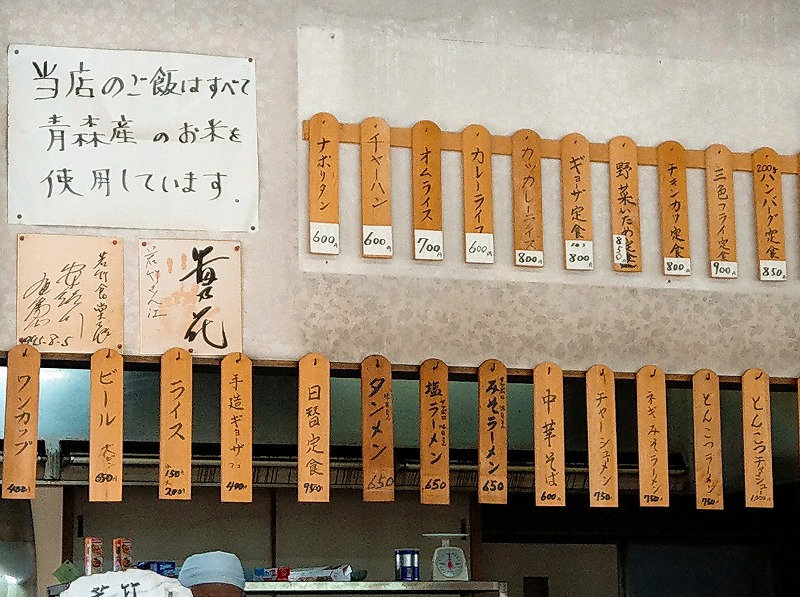 当店のご飯はすべて
青森産のお米を
使用しています。
若竹食堂
1995-8-5
若竹さん江
貴乃花
ナポリタン
600円
チャーハン
600円
オムライス
700円
カレーライス
600円
カツカレーライス
800円
ギョーザ定食
800円
野菜いため定食
850
チキンカツ定食
800円
三色フライ定食
900円
200gハンバーグ定食
850円
ワンカップ
400円
ビール
大ビン
650円
ライス
150円
大200円
手造ギョーザ
400円
日替定食
950
タンメン
650
塩ラーメン
650
みそラーメン
650
中華そば
600円
チャーシューメン
750円
ネギみそラーメン
750円
とんこつラーメン
750円
とんこつチャーシュー
1,000円
若竹